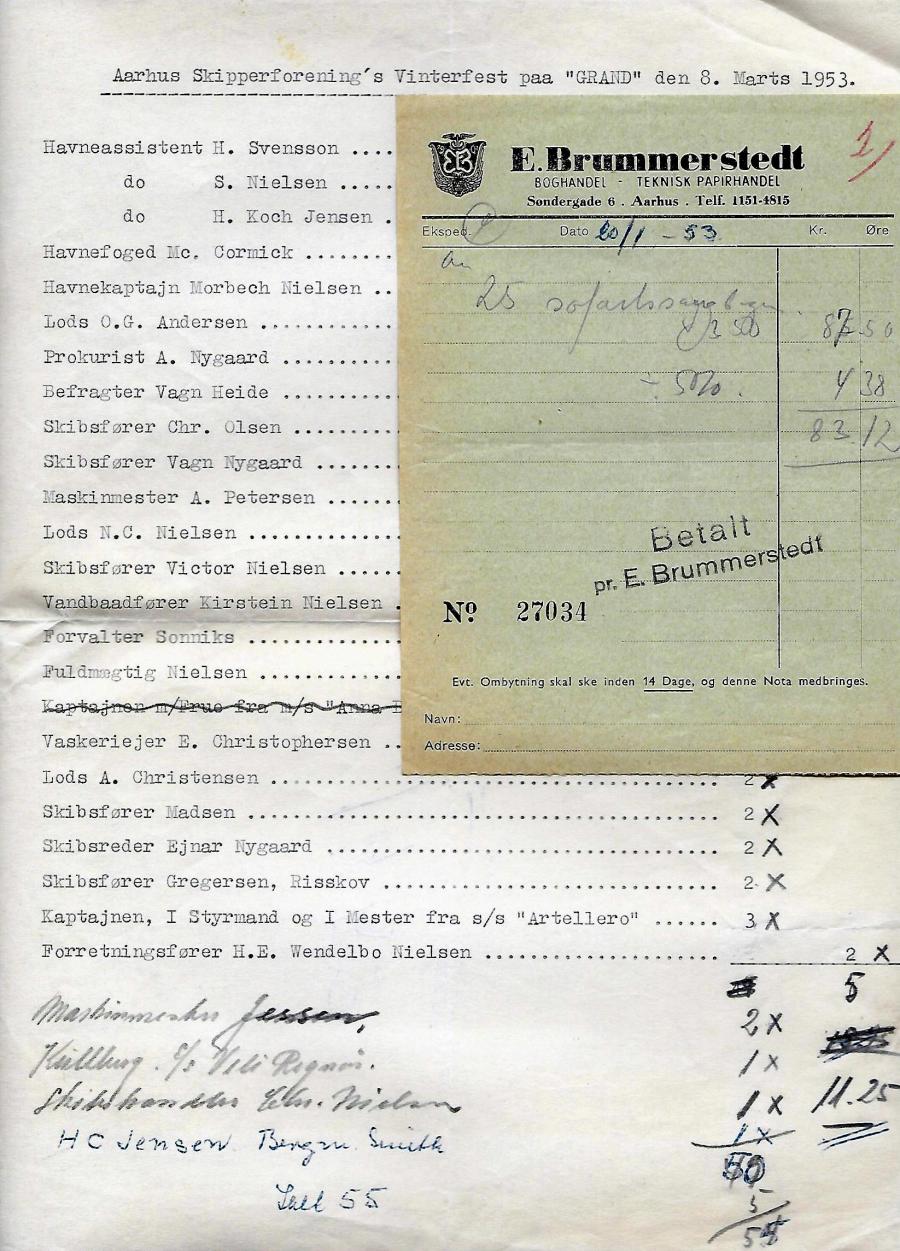 Aarhus Skipperforening's Vinterfest paa "GRAND" den 8. Marts 1953.
Havneassistent H. Svensson ....
do S. Nielsen .....
do H. Koch Jensen .
Havnefoged Mc. Cormick ........
Havnekaptajn Morbech Nielsen ..
Lods O.G. Andersen ............
Prokurist A. Nygaard ..........
Befragter Vagn Heide ..........
Skibsfører Chr. Olsen .........
Skibsfører Vagn Nygaard .......
Maskinmester A. Petersen ......
Lods N.C. Nielsen .............
Skibsfører Victor Nielsen .....
Vandbaadfører Kirstein Nielsen .
Forvalter Sonniks .............
Fuldmægtig Nielsen ............
Kaptajnen m/Frue fra m/s "Anna
Vaskeriejer E. Christophersen ..
Lods A. Christensen ........................................ 2 x
Skibsfører Madsen .......................................... 2 x
Skibsreder Ejnar Nygaard ................................... 2 x
Skibsfører Gregersen, Risskov .............................. 2 x
Kaptajnen, I Styrmand og I Mester fra s/s "Artellero" ...... 3 x
Forretningsfører H.E. Wendelbo Nielsen ..................... 2 x
5
Maskinmester Jessen, 2 x
1 x
Skibshandler Chr. Nielsen 1 x 11.25
H C Jensen Bergm. Smith 1 x
50
Ialt 55 5
1/
E. Brummerstedt
BOGHANDEL - TEKNISK PAPIRHANDEL
Søndergade 6 . Aarhus . Telf. 1151-4815
Eksped. Dato 20/1 - 53 Kr. Øre
25
3 50 87 50
÷ 5% . 4 38
83 12
Betalt
pr. E. Brummerstedt
Nº 27034
Evt. Ombytning skal ske inden 14 Dage, og denne Nota medbringes.
Navn:
Adresse: